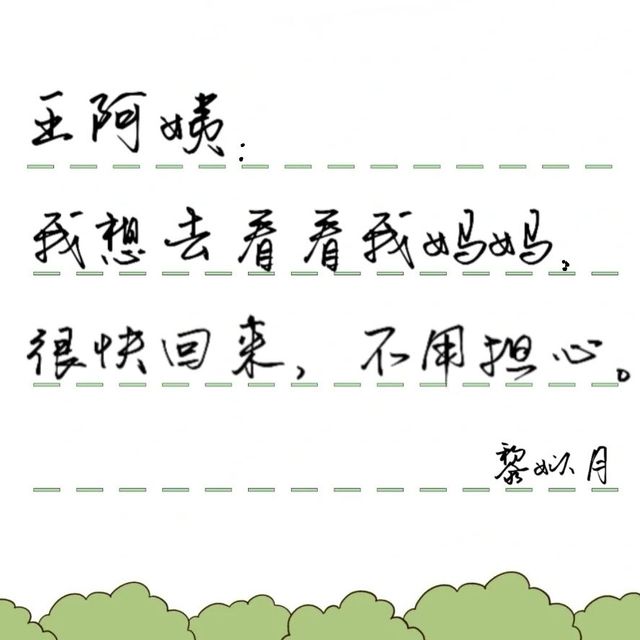 王阿姨：
我想去看看我妈妈，
很快回来，不用担心。
黎姒月